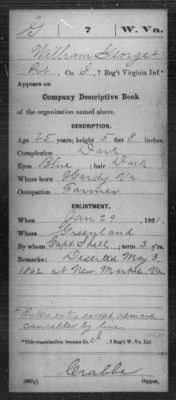 G 7 W. Va.
William George
Pvt., Co. I, 7 Reg't Virginia Inf.*
Appears on
Company Descriptive Book
of the organization named above.
DESCRIPTION.
Age 25 years; height 5 feet 8 inches.
Complexion Dark
Eyes Blue; hair Dark
Where born Hardy Va
Occupation Farmer
ENLISTMENT.
When Jan 29, 1861.
Where Greenland
By whom Capt. ; term 3 y'rs.
Remarks: Deserted May 3
1862 at New Market Va
*Enters entry except remark
cancelled by line
*This organization became Co. I, 7 Reg't W. Va. Inf.
Crabbe
Copyist.